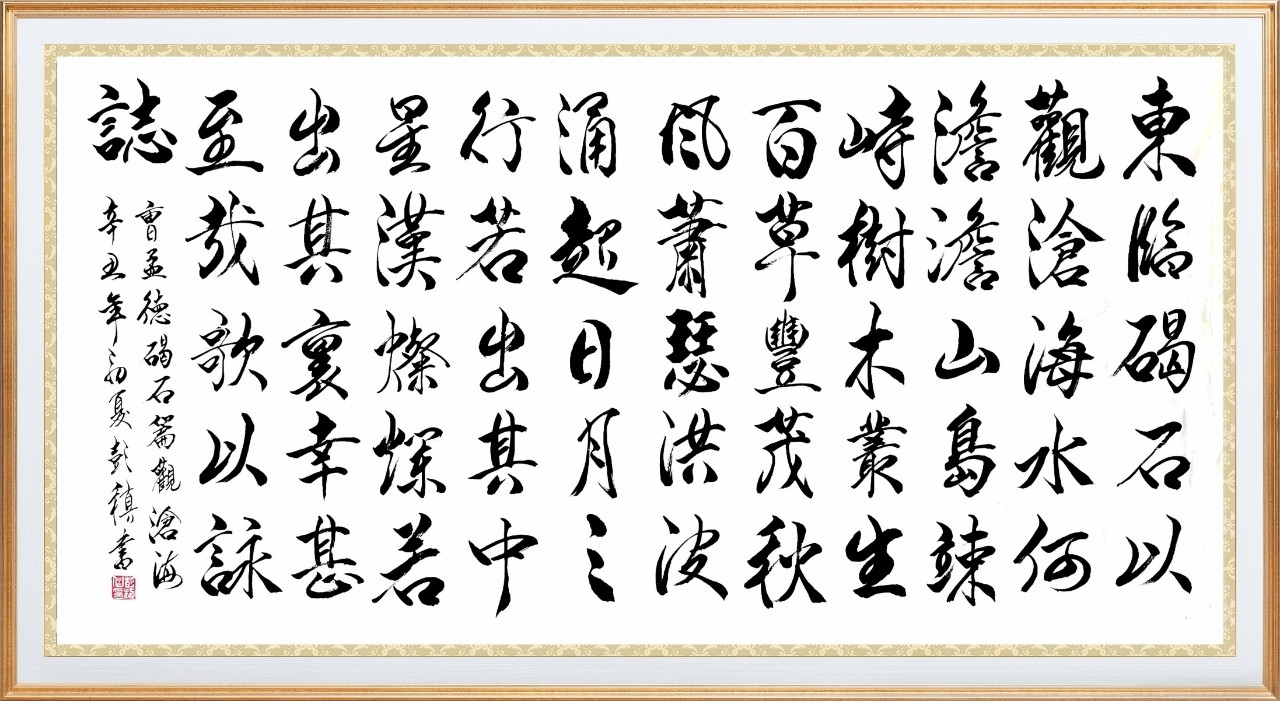 東臨碣石以
觀滄海水何
澹澹山島竦
峙樹木叢生
百草豐茂秋
風蕭瑟洪波
涌起日月之
行若出其中
星漢燦爛若
出其裏幸甚
至哉歌以詠
誌
曹孟德碣石篇觀滄海
辛丑年初夏彭積書